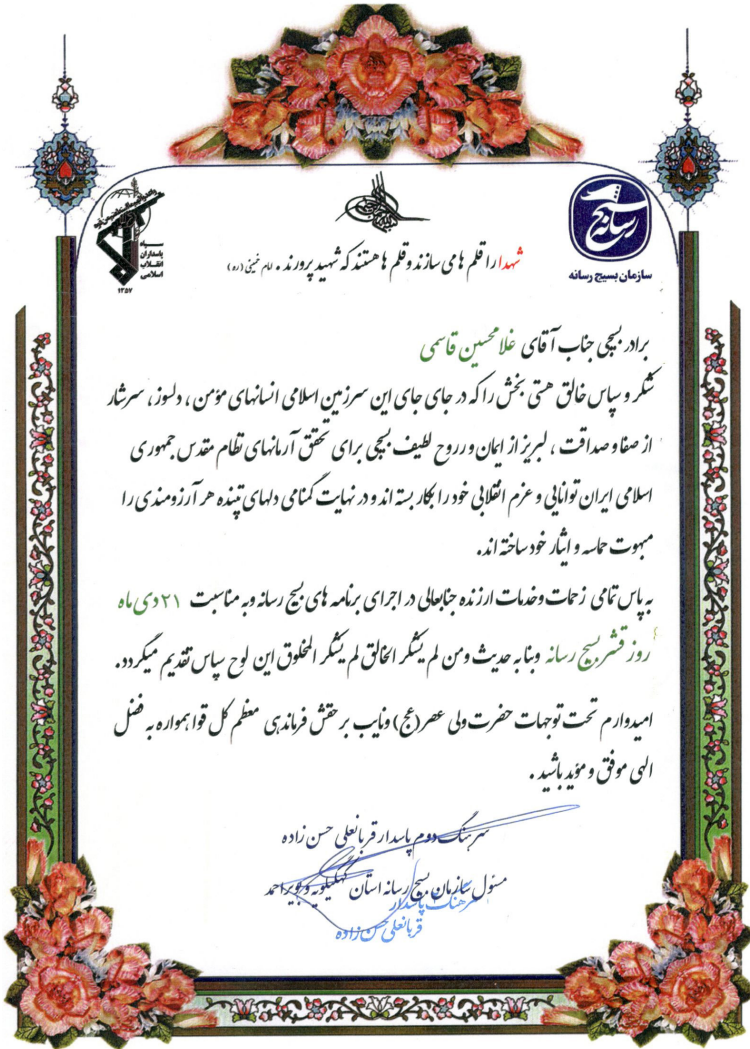 بسیج رسانه
سازمان بسیج رسانه
سپاه
پاسداران
انقلاب
اسلامی
۱۳۵۷
شهدا را قلم ها می سازند و قلم ها هستند که شهید پرورند . امام خمینی (ره)
برادر بسیجی جناب آقای غلامحسین قاسمی
شکر و سپاس خالق هستی بخش را که در جای جای این سرزمین اسلامی انسانهای مؤمن ، دلسوز ، سرشار
از صفا و صداقت ، لبریز از ایمان و روح لطیف بسیجی برای تحقق آرمانهای نظام مقدس جمهوری
اسلامی ایران توانایی و عزم انقلابی خود را بکار بسته اند و در نهایت گمنامی دلهای تپنده هر آرزومندی را
مبهوت حماسه و ایثار خود ساخته اند.
به پاس تمامی زحمات وخدمات ارزنده جنابعالی در اجرای برنامه های بسیج رسانه وبه مناسبت ۲۱ دی ماه
روز قشر بسیج رسانه وبنا به حدیث ومن لم یشکر الخالق لم یشکر المخلوق این لوح سپاس تقدیم میگردد.
امیدوارم تحت توجهات حضرت ولی عصر (عج) ونایب بر حقش فرماندهی معظم کل قوا همواره به فضل
الهی موفق و مؤید باشید .
سرهنگ دوم پاسدار قربانعلی حسن زاده
مسئول سازمان بسیج رسانه استان کهگیلویه و بویراحمد
سرهنگ پاسدار
قربانعلی حسن زاده